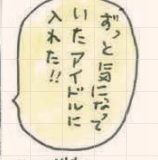 ずっと気になって
いたアイドルに
入れた!!